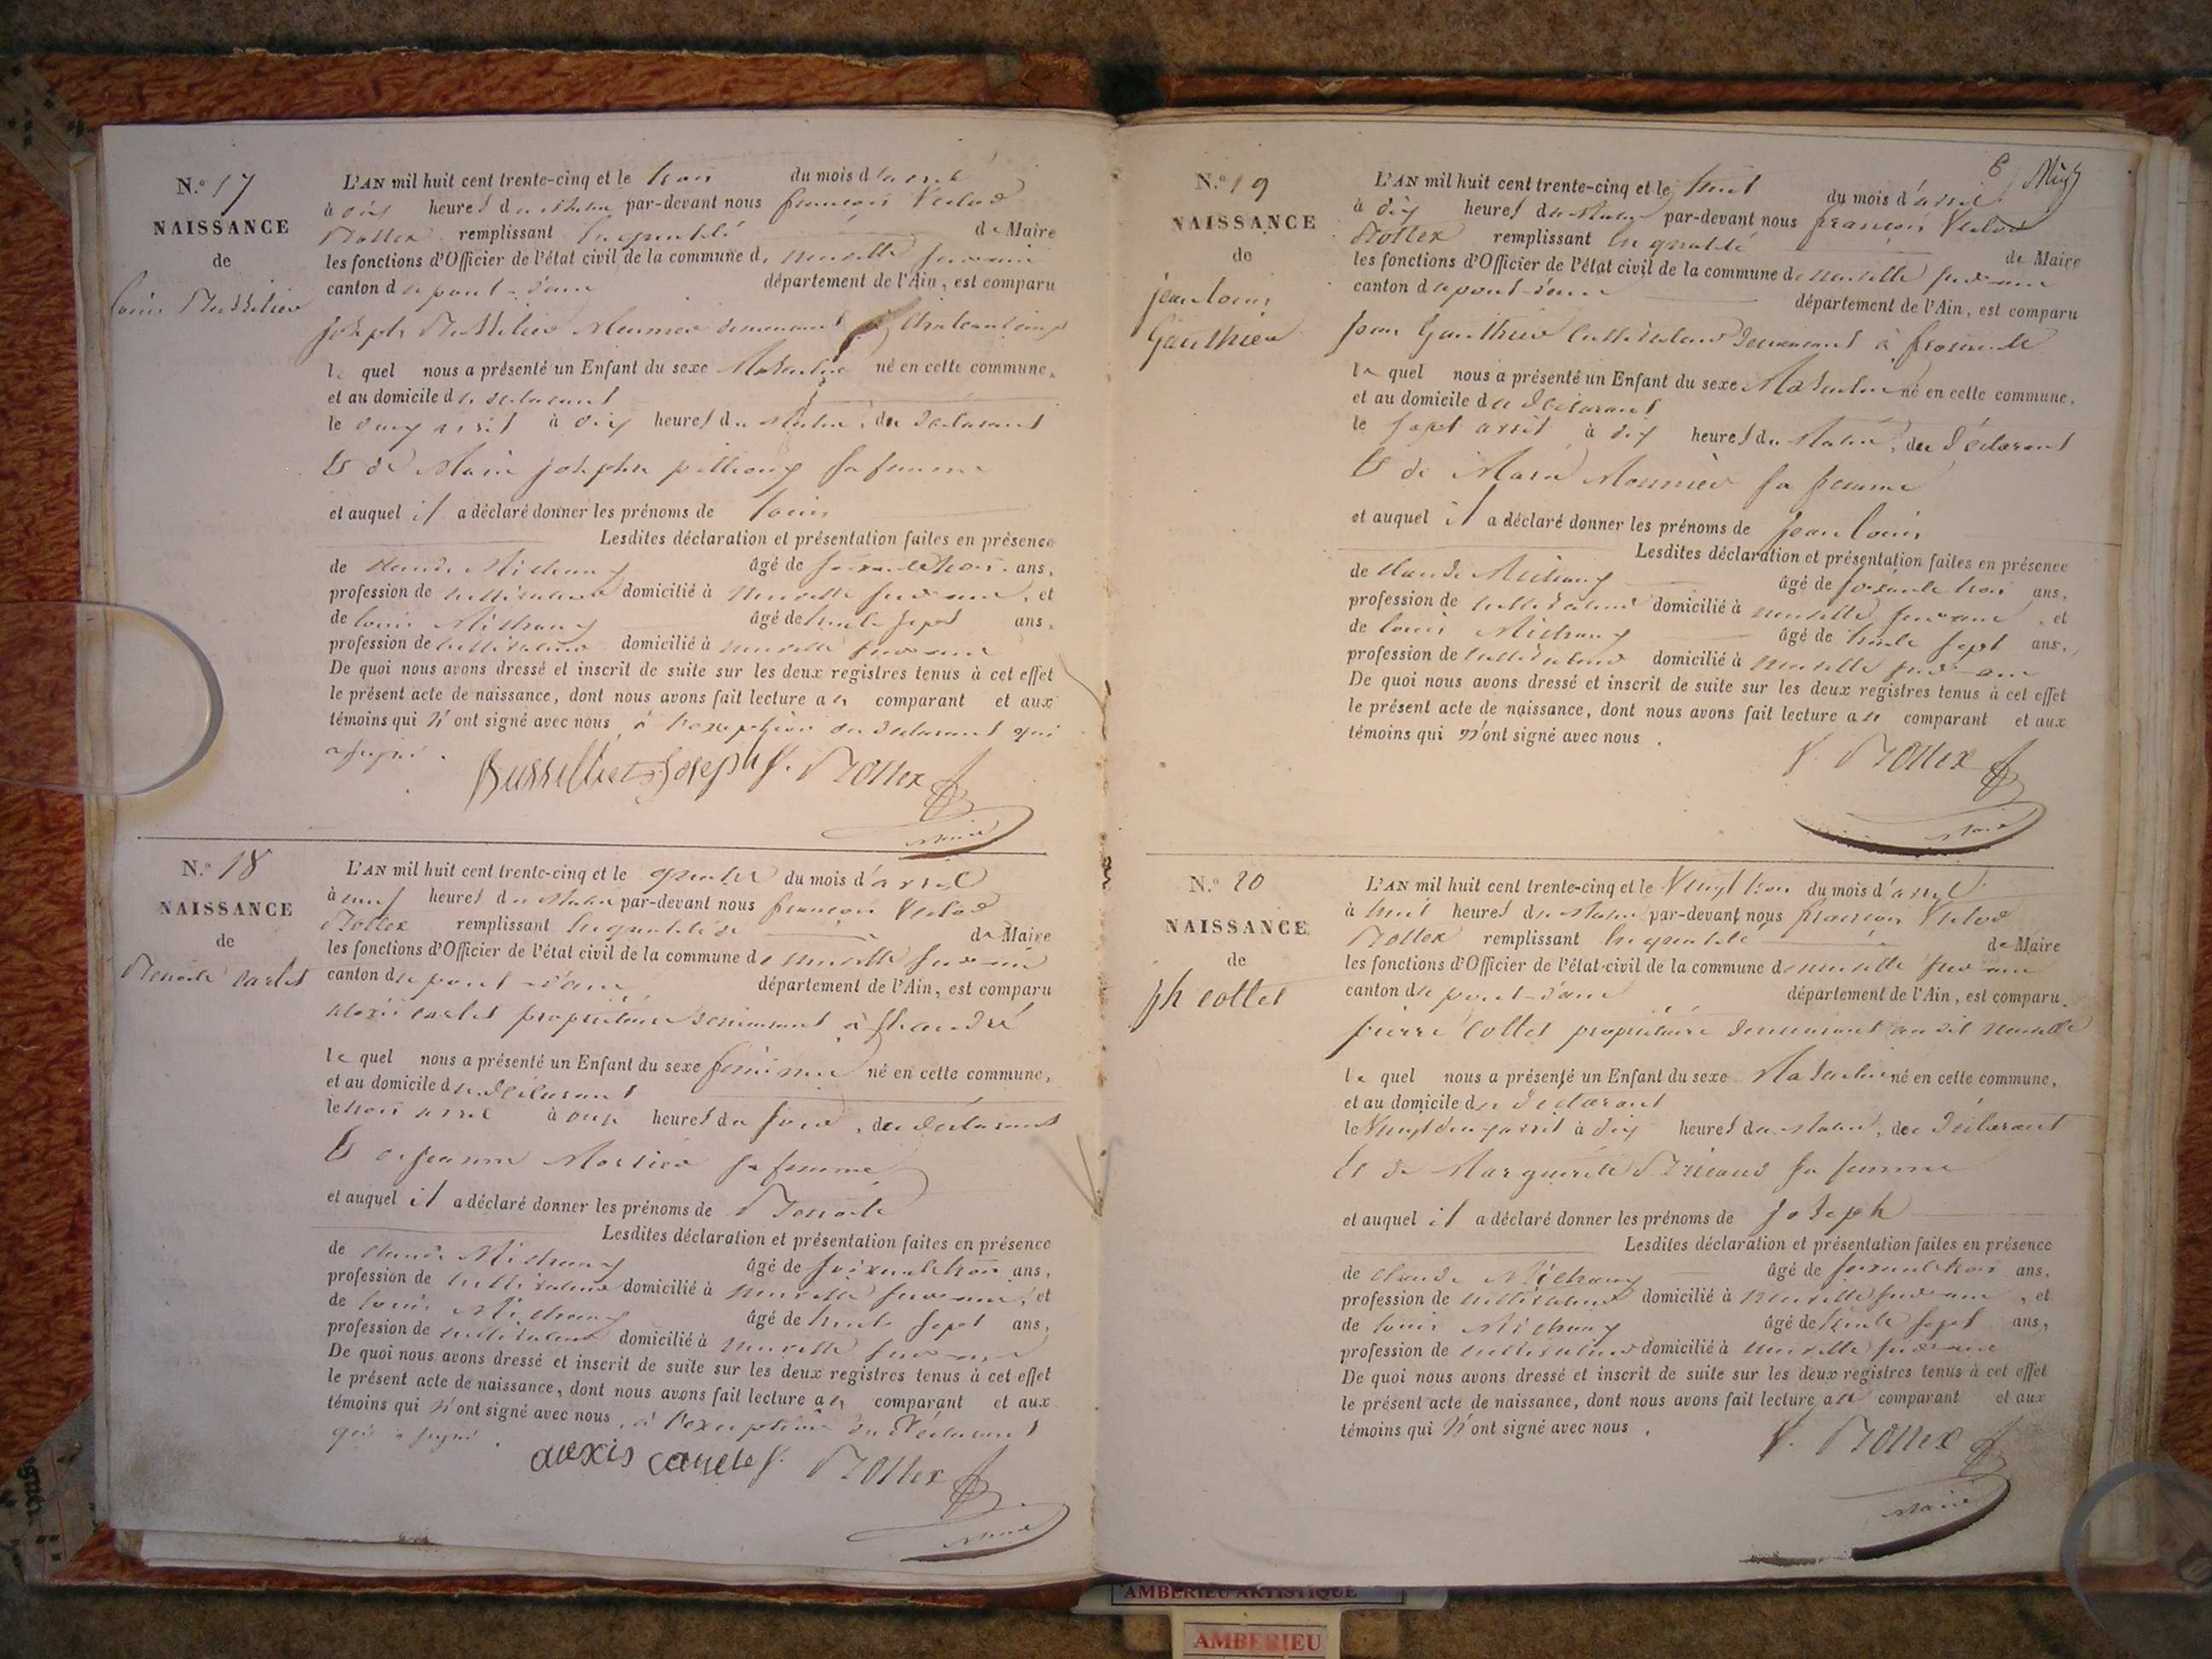 N.º 17
NAISSANCE
de
louis Bussilier
L'AN mil huit cent trente-cinq et le trois du mois d'avril
à dix heures du matin par-devant nous françois Victor
Bottex remplissant la qualité de Maire
les fonctions d'Officier de l'état civil de la commune de neuville sur ain
canton de pont-d'ain département de l'Ain, est comparu
joseph demeurant à
le quel nous a présenté un Enfant du sexe Masculin né en cette commune,
et au domicile du declarant
le avril à dix heures du Matin, du declarant
Et de Marie josephe sa femme
et auquel il a déclaré donner les prénoms de louis
Lesdites déclaration et présentation faites en présence
de claude Michaux âgé de soixante trois ans,
profession de cultivateur domicilié à neuville sur ain, et
de louis Michaux âgé de trente sept ans,
profession de cultivateur domicilié à neuville sur ain
De quoi nous avons dressé et inscrit de suite sur les deux registres tenus à cet effet
le présent acte de naissance, dont nous avons fait lecture au comparant et aux
témoins qui n'ont signé avec nous, à l'exception du declarant qui
a signé.
Bussilliet Joseph V. Bottex
Maire
N.º 18
NAISSANCE
de
Benoite carlet
L'AN mil huit cent trente-cinq et le quatre du mois d'avril
à neuf heures du Matin par-devant nous françois Victor
Bottex remplissant la qualité de Maire
les fonctions d'Officier de l'état civil de la commune de neuville sur ain
canton de pont-d'ain département de l'Ain, est comparu
alexis carlet propriétaire demeurant à st andré
le quel nous a présenté un Enfant du sexe feminin né en cette commune,
et au domicile du declarant
le trois avril à onze heures du soir, du declarant
Et de jeanne sa femme
et auquel il a déclaré donner les prénoms de Benoite
Lesdites déclaration et présentation faites en présence
de claude Michaux âgé de soixante trois ans,
profession de cultivateur domicilié à neuville sur ain, et
de louis Michaux âgé de trente sept ans,
profession de cultivateur domicilié à neuville sur ain
De quoi nous avons dressé et inscrit de suite sur les deux registres tenus à cet effet
le présent acte de naissance, dont nous avons fait lecture au comparant et aux
témoins qui n'ont signé avec nous, à l'exception du declarant
qui a signé.
alexis V. Bottex
Maire
6
N.º 19
NAISSANCE
de
jean louis
Gauthier
L'AN mil huit cent trente-cinq et le huit du mois d'avril
à dix heures du Matin par-devant nous françois Victor
Bottex remplissant la qualité de Maire
les fonctions d'Officier de l'état civil de la commune de neuville sur ain
canton de pont-d'ain département de l'Ain, est comparu
jean Gauthier cultivateur demeurant à fromente
le quel nous a présenté un Enfant du sexe Masculin né en cette commune,
et au domicile du declarant
le sept avril à dix heures du Matin, du déclarant
Et de Marie Mounier sa femme
et auquel il a déclaré donner les prénoms de jean louis
Lesdites déclaration et présentation faites en présence
de claude Michaux âgé de soixante trois ans,
profession de cultivateur domicilié à neuville sur ain, et
de louis Michaux âgé de trente sept ans,
profession de cultivateur domicilié à neuville sur ain
De quoi nous avons dressé et inscrit de suite sur les deux registres tenus à cet effet
le présent acte de naissance, dont nous avons fait lecture au comparant et aux
témoins qui n'ont signé avec nous.
V. Bottex
Maire
N.º 20
NAISSANCE
de
jh collet
L'AN mil huit cent trente-cinq et le Vingt trois du mois d'avril
à huit heures du Matin par-devant nous françois Victor
Bottex remplissant la qualité de Maire
les fonctions d'Officier de l'état-civil de la commune de neuville sur ain
canton de pont-d'ain département de l'Ain, est comparu
pierre collet propriétaire demeurant au dit neuville
le quel nous a présenté un Enfant du sexe Masculin né en cette commune,
et au domicile du declarant
le Vingt deux avril à dix heures du Matin, du déclarant
Et de Marguerite sa femme
et auquel il a déclaré donner les prénoms de joseph
Lesdites déclaration et présentation faites en présence
de claude Michaux âgé de soixante trois ans,
profession de cultivateur domicilié à neuville sur ain, et
de louis Michaux âgé de trente sept ans,
profession de cultivateur domicilié à neuville sur ain
De quoi nous avons dressé et inscrit de suite sur les deux registres tenus à cet effet
le présent acte de naissance, dont nous avons fait lecture au comparant et aux
témoins qui n'ont signé avec nous.
V. Bottex
Maire
AMBERIEU ARTISTIQUE
AMBERIEU